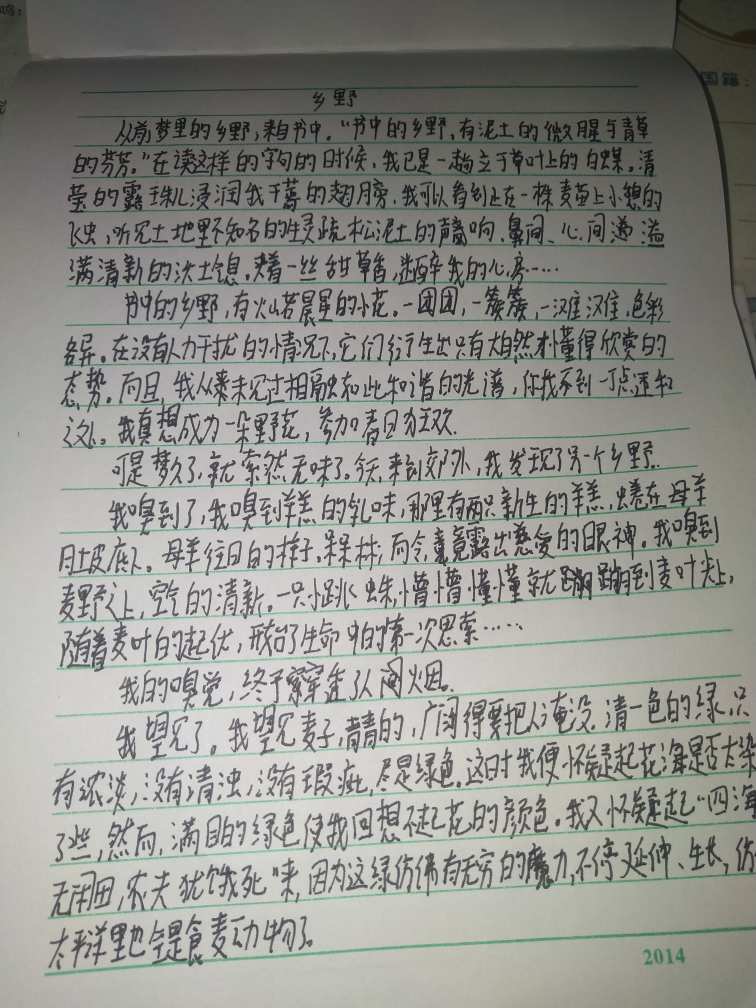 国籍:
乡野
从前,梦里的乡野,来自书中。“书中的乡野,有泥土的微腥与青草
的芬芳。”在读这样的字句的时候,我已是一趟立于草叶上的白蝶。清
莹的露珠儿浸润我干蔫的翅膀,我可以看到正在一株麦苗上小憩的
飞虫,听见土地里不知名的生灵疏松泥土的声响,鼻间、心间满溢
满清新的沃土息,夹着一丝甜草香,迷醉我的心房……
书中的乡野,有灿若晨星的小花。一团团,一簇簇,一滩滩,色彩
各异。在没有人力干扰的情况下,它们衍生出只有大自然才懂得欣赏的
态势。而且,我从来未见过相融如此和谐的光谱,你找不到一丁点违和
之处。我真想成为一朵野花,参加春日狂欢.
可是梦久了,就索然无味了。今天,来到郊外,我发现了另一个乡野.
我嗅到了,我嗅到羊羔的乳味,那里有两只新生的羊羔,蜷在母羊
肚皮底下。母羊往日的样子,呆呆林,而今,竟竟露出慈爱的眼神。我嗅到
麦野之上,空气的清新。一只小跳蛛,懵懵懂懂就蹦蹦到麦叶尖上,
随着麦叶的起伏,形成了生命中的第一次思索……
我的嗅觉,终于穿透了人间火烟。
我望见了。我望见麦子,青青的,广阔得要把人淹没.清一色的绿,只
有浓淡,没有清浊,没有瑕疵,尽是绿色。这时我便怀疑起花海是否太染
了些,然而,满目的绿色使我回想不起花的颜色。我又怀疑起“四海
无闲田,农夫犹饿死”来,因为这绿仿佛有无穷的魔力,不停延伸、生长,仿
太平洋里也全是食麦动物了。
2014